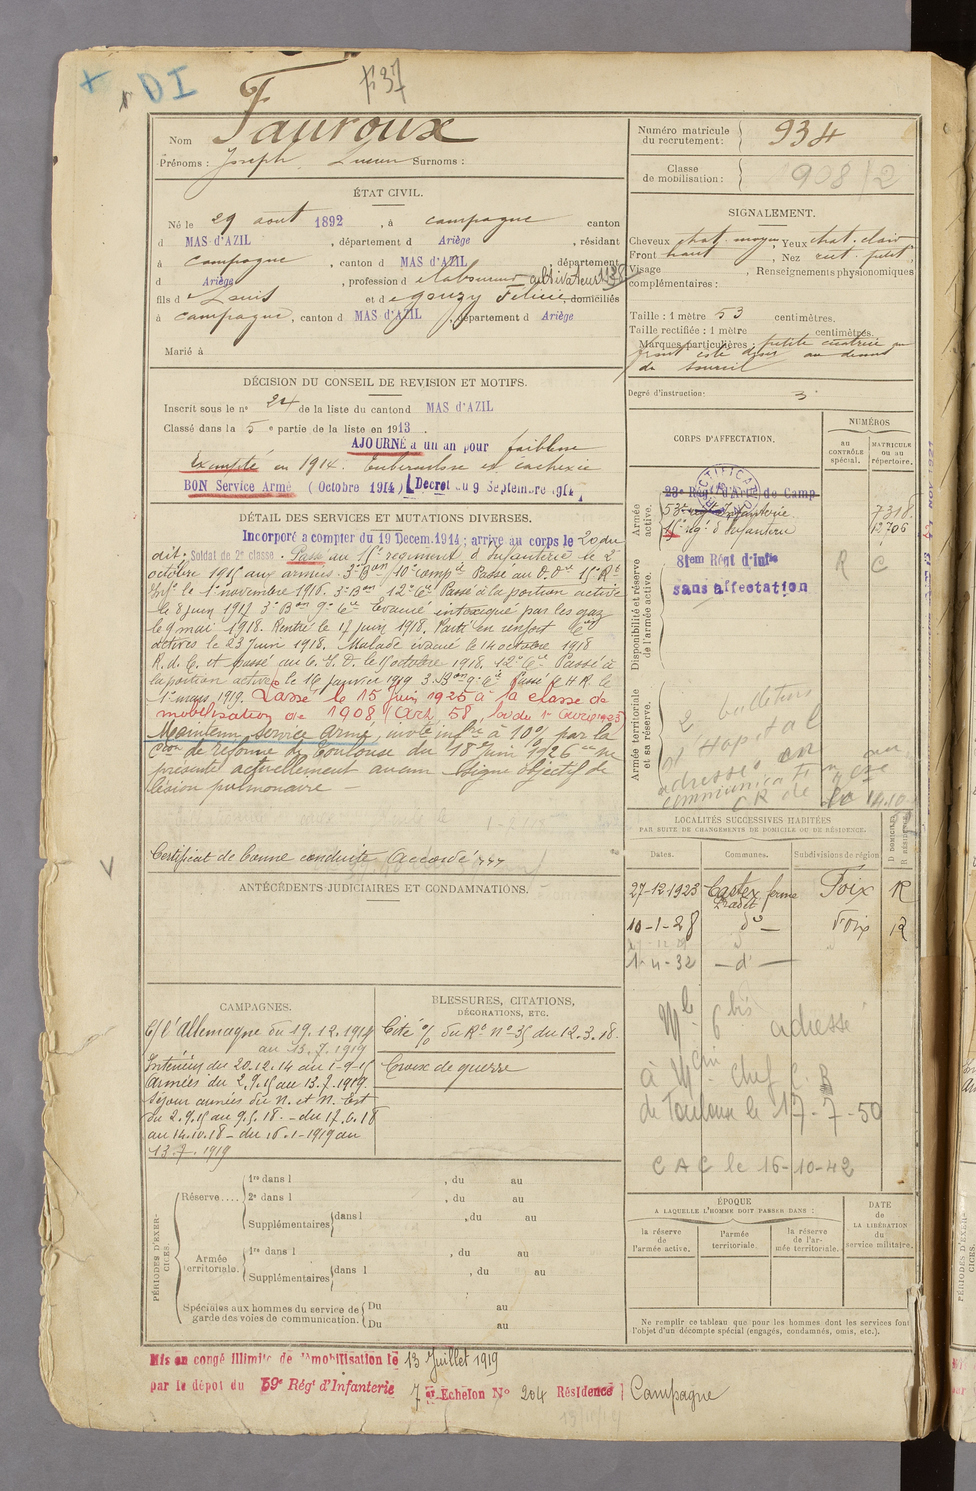 DI
F37
Nom Fauroux
Prénoms : Joseph Lucien Surnoms :
Numéro matricule du recrutement : 934
Classe de mobilisation : 908/2
ÉTAT CIVIL.
Né le 29 août 1892, à Campagne canton
d MAS-d'AZIL, département d Ariège, résidant
à Campagne, canton d MAS d'AZIL, département
d Ariège, profession de laboureur cultivateur
fils de Louis et de Gouzy Félicie domiciliés
à Campagne, canton d MAS d'AZIL, département d Ariège
Marié à
SIGNALEMENT.
Cheveux chat. moyen, Yeux chat. clair
Front haut, Nez rect. petit,
Visage , Renseignements physionomiques
complémentaires :
Taille : 1 mètre 53 centimètres.
Taille rectifiée : 1 mètre centimètres.
Marques particulières : petite cicatrice au
front côté droit au dessus
du sourcil
Degré d'instruction : 3
DÉCISION DU CONSEIL DE REVISION ET MOTIFS.
Inscrit sous le n° 24 de la liste du canton d MAS d'AZIL
Classé dans la 5e partie de la liste en 1913.
AJOURNÉ à un an pour faiblesse
Exempté en 1914. Tuberculose et cachexie
BON Service Armé (Octobre 1914) Décret du 9 Septembre 1914
DÉTAIL DES SERVICES ET MUTATIONS DIVERSES.
Incorporé a compter du 19 Decem. 1914 ; arrivé au corps le 20 du
dit. Soldat de 2e classe. Passé au 15e régiment d'Infanterie le 2
octobre 1915 aux armées. 3e Bon 10e Compie Passé au D.D. 15e Rt
Infie le 1er novembre 1916. 3e Bon 12e Cie Passé à la portion active
le 8 juin 1917 3e Bon 9e Cie Evacué intoxiqué par les gaz
le 9 mai 1918. Rentré le 17 juin 1918. Parti en renfort
actives le 23 juin 1918. Malade évacué le 14 octobre 1918
R. d. C. et passé au C. I. D. le octobre 1918. 12e Cie Passé à
la portion active le 16 janvier 1919 3e Bon 9e Cie Passé C.H.R. le
1er mars 1919. Classé le 15 juin 1925 à la classe de
mobilisation de 1908 (Art 58, loi du 1er Avril 1923)
Maintenu service armé, invté infre à 10% par la
Cion de réforme de Toulouse du 18 juin 1926 ne
présente actuellement aucun signe objectif de
lésion pulmonaire —
Certificat de bonne conduite Accordé
ANTÉCÉDENTS JUDICIAIRES ET CONDAMNATIONS.
CORPS D'AFFECTATION.
NUMÉROS
AU CONTRÔLE spécial.
MATRICULE ou au répertoire.
Armée active.
23e Régt d'Art. de Camp.
53e regt d'Infanterie 7318
15e regt d'Infanterie 12706
RECTIFICATION
Disponibilité et réserve de l'armée active.
81em Régt d'Infie
sans affectation
R C
Armée territoriale et sa réserve.
2 bulletins
d'Hopital
adressés en
communication
CR de
LOCALITÉS SUCCESSIVES HABITÉES
PAR SUITE DE CHANGEMENTS DE DOMICILE OU DE RÉSIDENCE.
Dates. Communes. Subdivisions de région D DOMICILE R RÉSIDENCE
27-12-1923 Castex ferme Pradet Foix R
10-1-28 do — Foix R
1-4-32 — do —
Mle 6 bis adressé
à chef C. B
de Toulouse le 17-7-50
CAC le 16-10-42
CAMPAGNES.
C/ l'Allemagne du 19.12.1914
au 13.7.1919
Intérieur du 20.12.14 au 1-9-15
Armées du 2.9.15 au 13.7.1919.
Séjour armées du N. et N. Est
du 2.9.15 au 9.5.18. - du 17.6.18
au 14.10.18 - du 16.1-1919 au
13.7.1919
BLESSURES, CITATIONS,
DÉCORATIONS, ETC.
Cité O/ du Rt No 35 du 12.3.18.
Croix de guerre
PÉRIODES D'EXERCICES.
Réserve.... 1re dans l , du au
2e dans l , du au
Supplémentaires dans l , du au
Armée territoriale. 1re dans l , du au
Supplémentaires dans l , du au
Spéciales aux hommes du service de garde des voies de communication. Du au
Du au
ÉPOQUE
A LAQUELLE L'HOMME DOIT PASSER DANS :
la réserve de l'armée active.
l'armée territoriale.
la réserve de l'armée territoriale.
DATE de LA LIBÉRATION du service militaire.
Ne remplir ce tableau que pour les hommes dont les services font
l'objet d'un décompte spécial (engagés, condamnés, omis, etc.).
Mis en congé illimité de démobilisation le 13 Juillet 1919
par le dépôt du 59e Régt d'Infanterie 7e Echelon No 204 Résidence Campagne